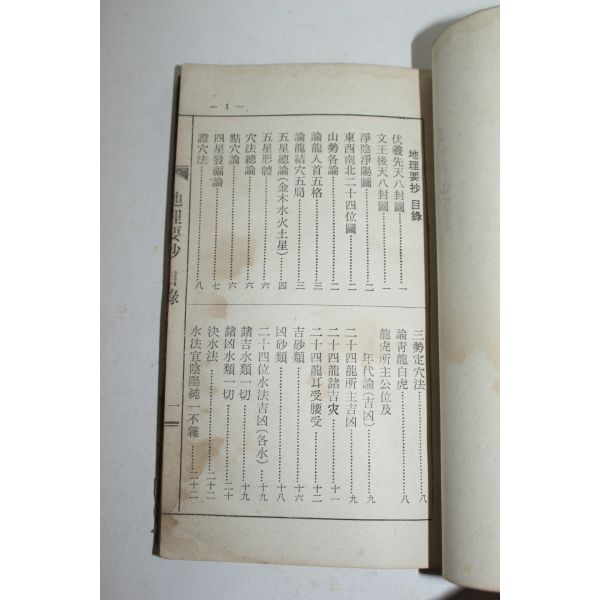 — 1 —
地理要抄 目錄
伏羲先天八卦圖 一
文王後天八卦圖 一
淨陰淨陽圖 二
東西南北二十四位圖 二
山勢各論 二
論龍入首五格 三
論龍結穴五局 三
五星總論(金木水火土星) 四
五星形體 六
穴法總論 六
點穴論 六
四星發福論 七
證穴法 八
三勢定穴法 八
論青龍白虎 八
龍虎所主公位及
年代論(吉凶) 九
二十四龍所主吉凶 九
二十四龍諸吉灾 十一
二十四龍耳受腰受 十二
吉砂類 十六
凶砂類 十八
二十四位水法吉凶(各水) 十九
諸吉水類一切 十九
諸凶水類一切 二十
決水法 二十二
水法宜陰陽純一不雜 二十二
地理要抄 目錄 一